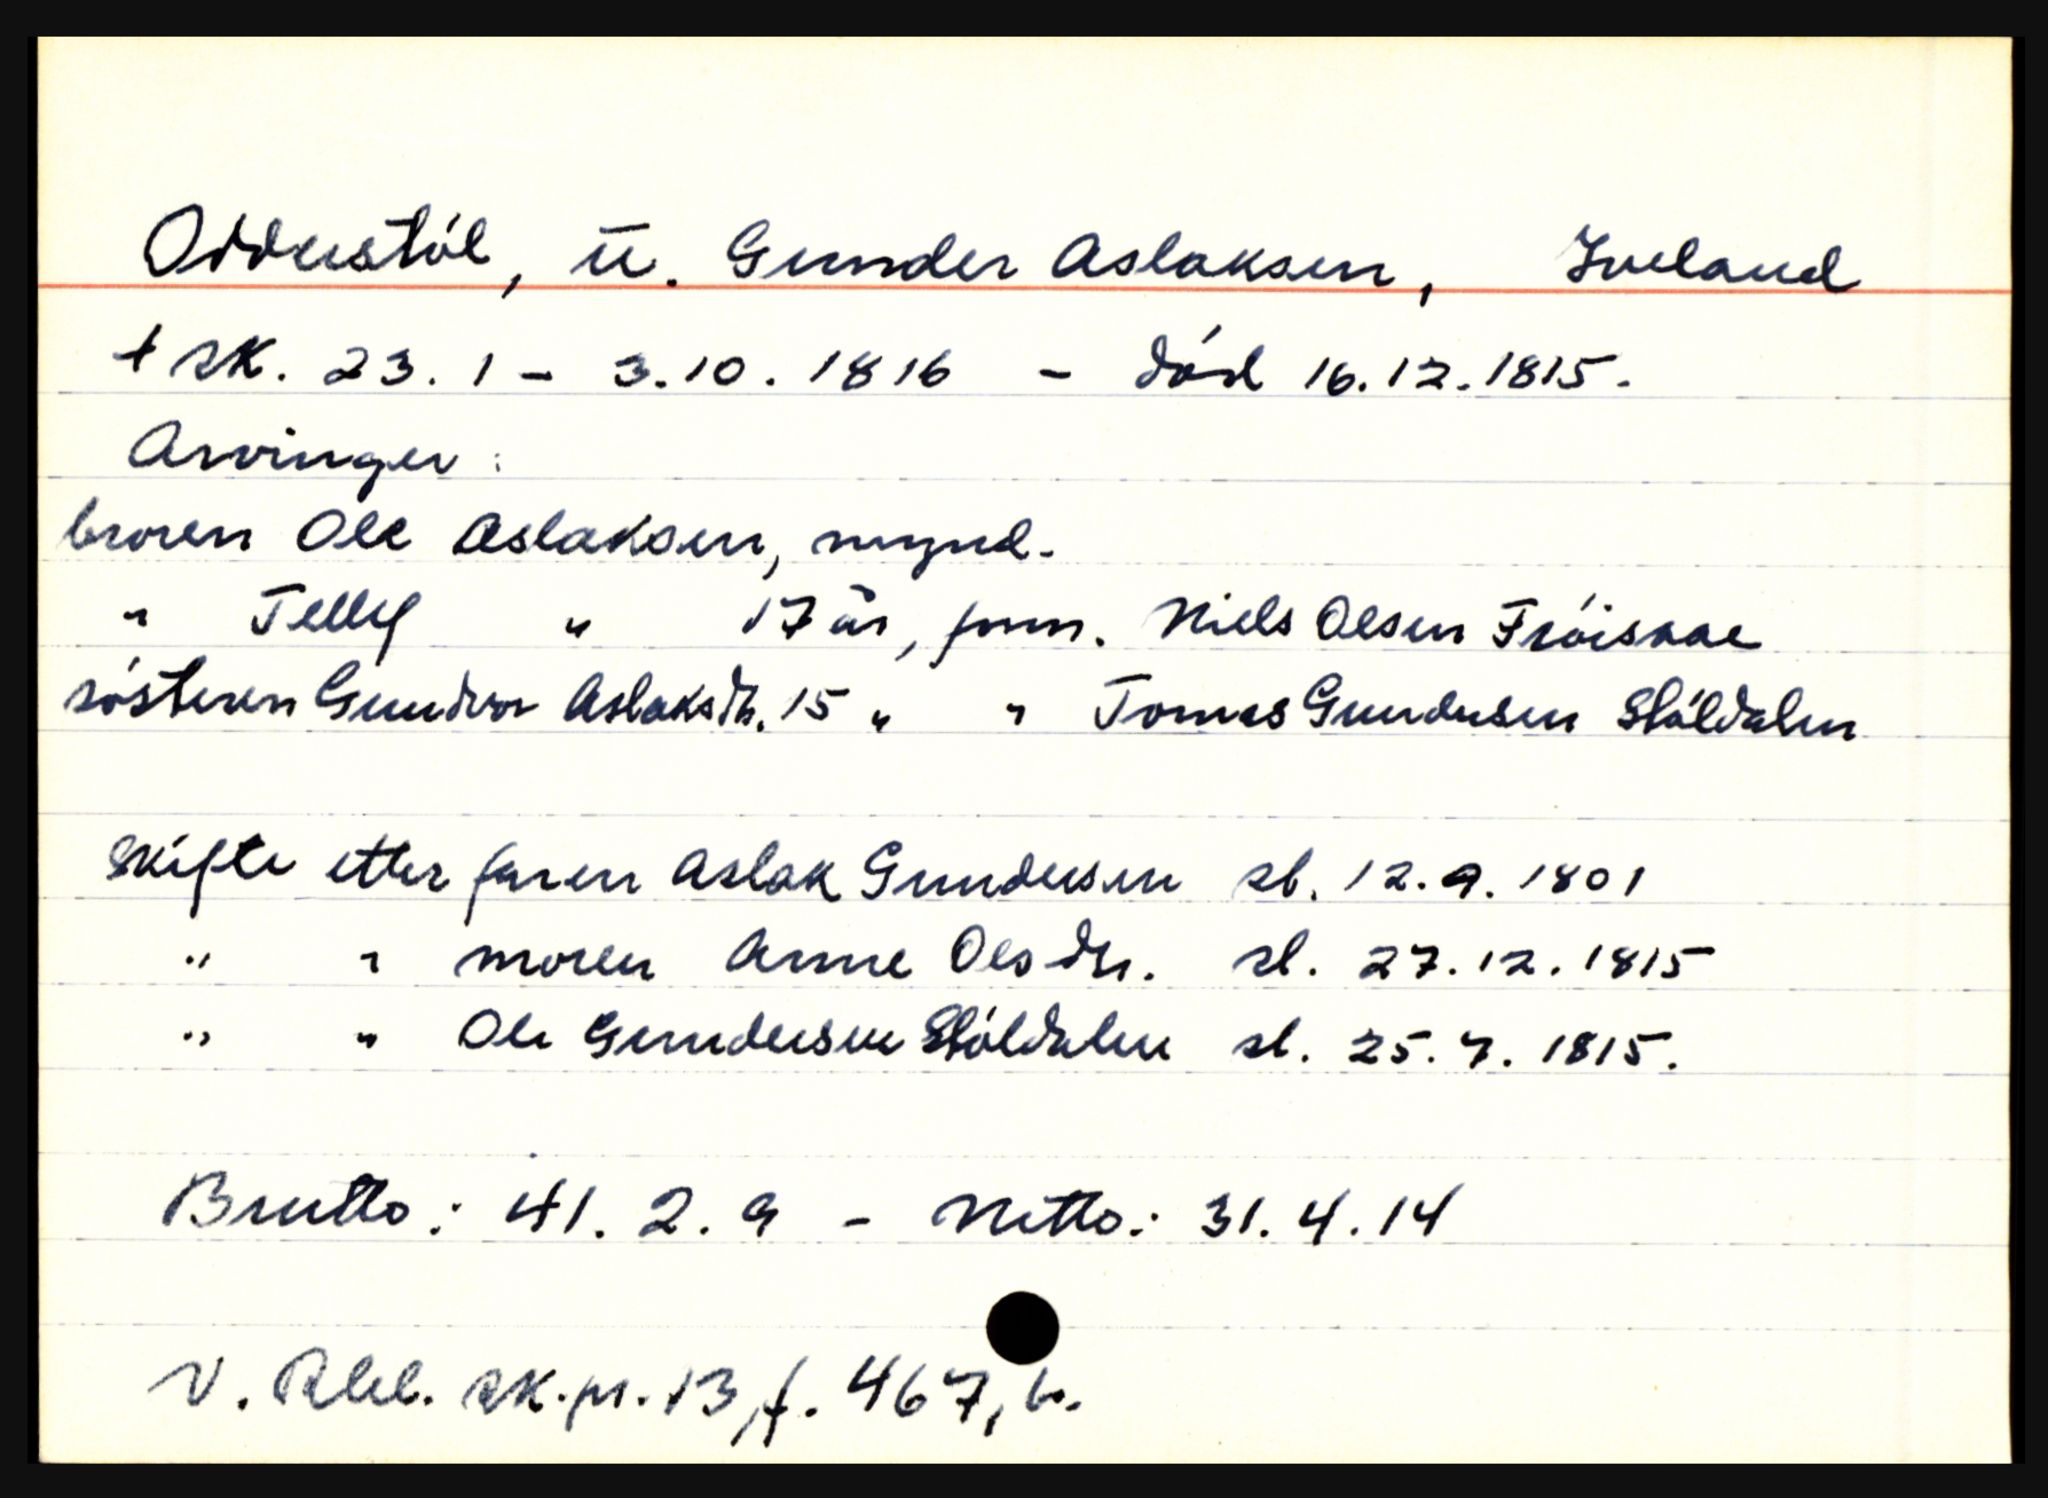 Oddestøl, u. Gunder Aslaksen, Iveland
+ sk. 23. 1 - 3. 10. 1816 - død 16. 12. 1815.
Arvinger:
broren Ole Aslaksen, mynd.
" Tellef " 17 år, form. Niels Olsen Frøisaae
søsteren Gundvor Aslaksdtr. 15 " " Tomes Gundersen Støldalen
Skifte etter faren Aslak Gundersen sl. 12. 9. 1801
" " moren Anne Olsdtr. sl. 27. 12. 1815
" " Ole Gundersen Støldalen sl. 25. 7. 1815.
Brutto: 41. 2. 9 - Netto: 31. 4. 14
V. Rbl. sk.pr. 13, f. 467, b.